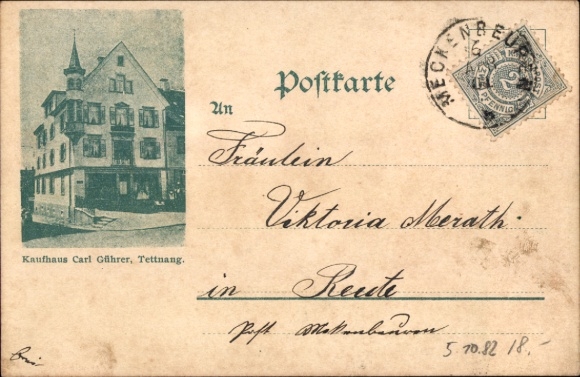 Postkarte
An
Fräulein
Viktoria Merath
in Reute
Post Mekenbeuren
Kaufhaus Carl Gührer, Tettnang.
MECKENBEUREN
2
PFENNIG
5.10.82 18.-